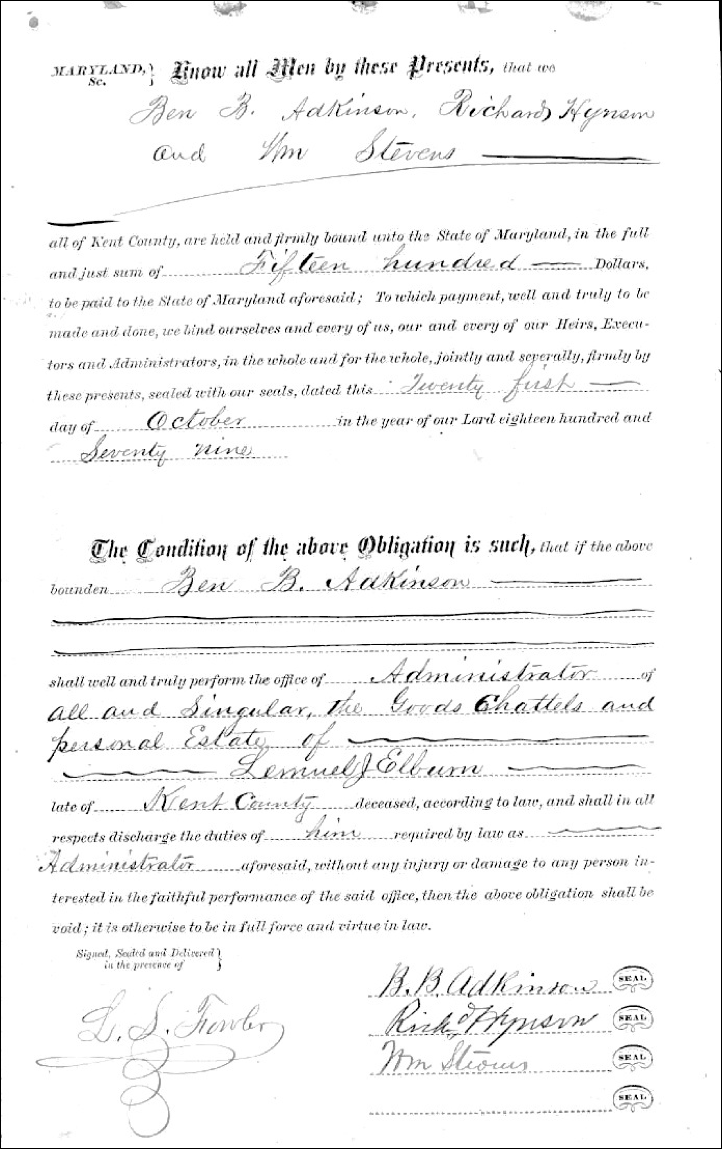 MARYLAND, Sc. } Know all Men by these Presents, that we
Ben B. Adkinson, Richard Hynson
and Wm Stevens
all of Kent County, are held and firmly bound unto the State of Maryland, in the full
and just sum of Fifteen hundred Dollars,
to be paid to the State of Maryland aforesaid; To which payment, well and truly to be
made and done, we bind ourselves and every of us, our and every of our Heirs, Execu-
tors and Administrators, in the whole and for the whole, jointly and severally, firmly by
these presents, sealed with our seals, dated this Twenty first
day of October in the year of our Lord eighteen hundred and
Seventy nine
The Condition of the above Obligation is such, that if the above
bounden Ben B. Adkinson
shall well and truly perform the office of Administrator of
all and Singular, the Goods Chattels and
personal Estate of
Lemuel J Elburn
late of Kent County deceased, according to law, and shall in all
respects discharge the duties of him required by law as
Administrator aforesaid, without any injury or damage to any person in-
terested in the faithful performance of the said office, then the above obligation shall be
void; it is otherwise to be in full force and virtue in law.
Signed, Sealed and Delivered }
in the presence of
B. B. Adkinson SEAL
L. S. Fowler
Richd Hynson SEAL
Wm Stevens SEAL
SEAL